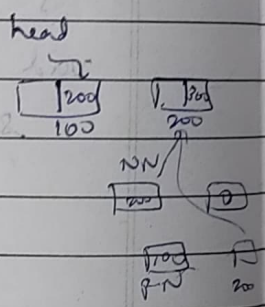 head
200 300
100 200
NN
200 0
100
PN 200